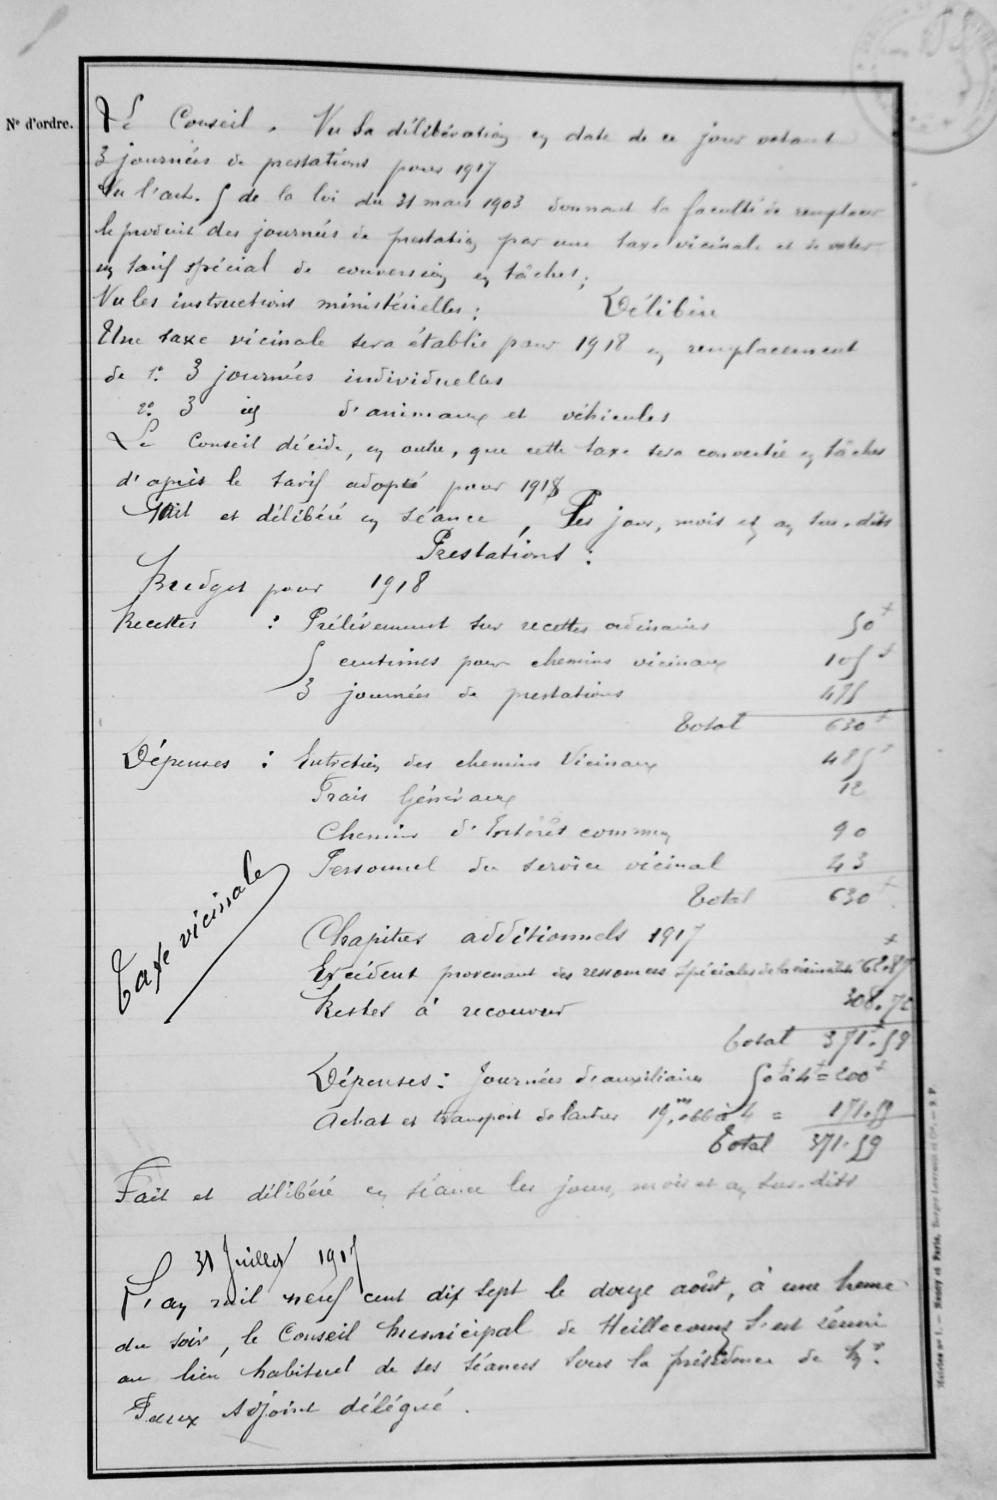 N° d'ordre.
Le Conseil, Vu sa délibération en date de ce jour votant
3 journées de prestations pour 1917
Vu l'art. 5 de la loi du 31 mars 1903 donnant la faculté de remplacer
le produit des journées de prestation par une taxe vicinale et de voter
un tarif spécial de conversion en tâches ;
Vu les instructions ministérielles : Délibère
Une taxe vicinale sera établie pour 1918 en remplacement
de 1° 3 journées individuelles
2° 3 id d'animaux et véhicules
Le Conseil décide, en outre, que cette taxe sera convertie en tâches
d'après le tarif adopté pour 1918
Fait et délibéré en séance, les jour, mois et an sus-dits
Prestations :
Budget pour 1918
Recettes : Prélèvement sur recettes ordinaires 50 f
5 centimes pour chemins vicinaux 105 f
3 journées de prestations 475
Total 630 f
Dépenses : Entretien des chemins Vicinaux 485 f
Frais Généraux 12
Chemins d'Intérêt commun 90
Personnel du service vicinal 43
Total 630 f
Taxe vicinale
Chapitres additionnels 1917
Excédent provenant des ressources spéciales de la vicinalité 62.87
Restes à recouvrer 308.72
Total 371.59
Dépenses : Journées d'auxiliaires 50 à 4 f = 200 f
Achat et transport de 4 = 171.59
Total 371.59
Fait et délibéré en séance les jour, mois et an sus-dits
31 Juillet 1917
L'an mil neuf cent dix sept le douze août, à une heure
du soir, le Conseil municipal de Heillecourt s'est réuni
au lieu habituel de ses séances sous la présidence de Mr.
Adjoint délégué.
Nancy et Paris, Berger-Levrault et Cie